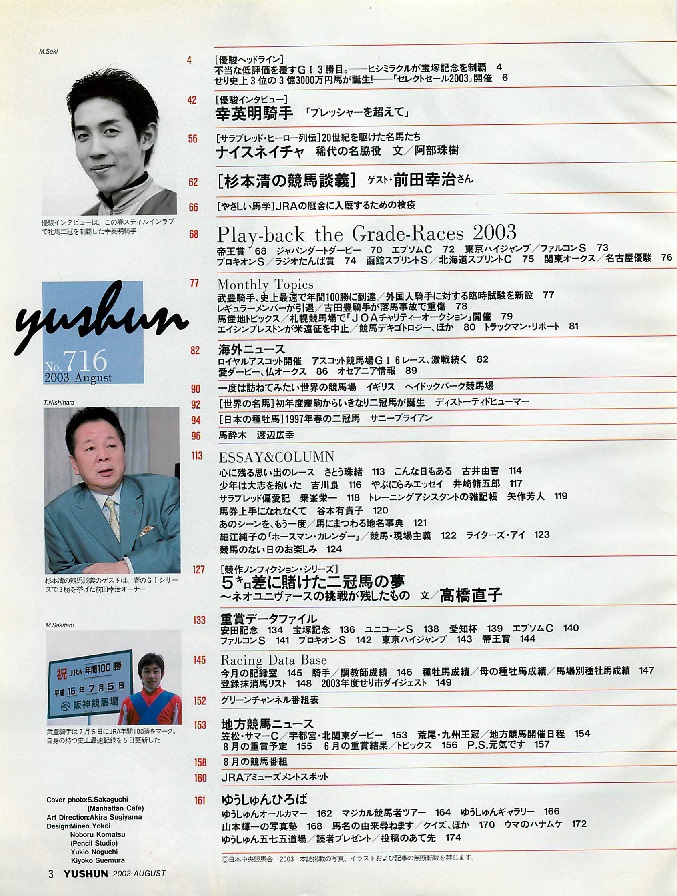 M.Seki
優駿インタビューは、この春スティルインラブ
で牝馬二冠を制覇した幸英明騎手
yushun
No.716
2003 August
T.Nishihara
杉本清の競馬談義のゲストは、春のGIシリー
ズで3勝を挙げた前田幸治オーナー
M.Sakitani
祝 JRA 年間100勝
平成15年7月5日
阪神競馬場
武豊騎手は7月5日にJRA年間100勝をマーク。
自身の持つ史上最速記録を5日更新した
Cover photo:S.Sakaguchi
(Manhattan Cafe)
Art Direction:Akira Sugiyama
Design:Mineo Yokoi
Noboru Komatsu
(Pencil Studio)
Yukio Noguchi
Kiyoko Suemura
3 YUSHUN 2003 AUGUST
4 [優駿ヘッドライン]
不当な低評価を覆すGI3勝目。――ヒシミラクルが宝塚記念を制覇 4
せり史上3位の3億3000万円馬が誕生!――「セレクトセール2003」開催 6
42 [優駿インタビュー]
幸英明騎手 「プレッシャーを超えて」
56 [サラブレッド・ヒーロー列伝]20世紀を駆けた名馬たち
ナイスネイチャ 稀代の名脇役 文/阿部珠樹
62 [杉本清の競馬談義] ゲスト・前田幸治さん
66 [やさしい馬学]JRAの厩舎に入厩するための検疫
68 Play-back the Grade-Races 2003
帝王賞 68 ジャパンダートダービー 70 エプソムC 72 東京ハイジャンプ/ファルコンS 73
プロキオンS/ラジオたんぱ賞 74 函館スプリントS/北海道スプリントC 75 関東オークス/名古屋優駿 76
77 Monthly Topics
武豊騎手、史上最速で年間100勝に到達/外国人騎手に対する臨時試験を新設 77
レギュラーメンバーが引退/吉田豊騎手が落馬事故で重傷 78
馬産地トピックス/札幌競馬場で「JOAチャリティーオークション」開催 79
エイシンプレストンが米遠征を中止/競馬デキゴトロジー、ほか 80 トラックマン・リポート 81
82 海外ニュース
ロイヤルアスコット開催 アスコット競馬場GI6レース、激戦続く 82
愛ダービー、仏オークス 86 オセアニア情報 89
90 一度は訪ねてみたい世界の競馬場 イギリス ヘイドックパーク競馬場
92 [世界の名馬]初年度産駒からいきなり二冠馬が誕生 ディストーティドヒューマー
94 [日本の種牡馬]1997年春の二冠馬 サニーブライアン
96 馬酔木 渡辺広幸
113 ESSAY&COLUMN
心に残る思い出のレース さとう珠緒 113 こんな日もある 古井由吉 114
少年は大志を抱いた 吉川良 116 やぶにらみエッセイ 井崎脩五郎 117
サラブレッド偏愛記 乗峯栄一 118 トレーニングアシスタントの雑記帳 矢作芳人 119
馬券上手になれなくて 谷本有貴子 120
あのシーンを、もう一度/馬にまつわる地名事典 121
細江純子の「ホースマン・カレンダー」/競馬・現場主義 122 ライターズ・アイ 123
競馬のない日のお楽しみ 124
127 [競作ノンフィクション・シリーズ]
5㌔差に賭けた二冠馬の夢
～ネオユニヴァースの挑戦が残したもの 文/高橋直子
133 重賞データファイル
安田記念 134 宝塚記念 136 ユニコーンS 138 愛知杯 139 エプソムC 140
ファルコンS 141 プロキオンS 142 東京ハイジャンプ 143 帝王賞 144
145 Racing Data Base
今月の記録室 145 騎手/調教師成績 146 種牡馬成績/母の種牡馬成績/馬場別種牡馬成績 147
登録抹消馬リスト 148 2003年度せり市ダイジェスト 149
152 グリーンチャンネル番組表
153 地方競馬ニュース
笠松・サマーC/宇都宮・北関東ダービー 153 荒尾・九州王冠/地方競馬開催日程 154
8月の重賞予定 155 6月の重賞結果/トピックス 156 P.S.元気です 157
158 8月の競馬番組
160 JRAアミューズメントスポット
161 ゆうしゅんひろば
ゆうしゅんオールカマー 162 マジカル競馬者ツアー 164 ゆうしゅんギャラリー 166
山本輝一の写真塾 168 馬名の由来尋ねます/クイズ、ほか 170 ウマのハナムケ 172
ゆうしゅん五七五道場/読者プレゼント/投稿のあて先 174
Ⓒ日本中央競馬会 2003 本誌掲載の写真、イラストおよび記事の無断転載を禁じます。